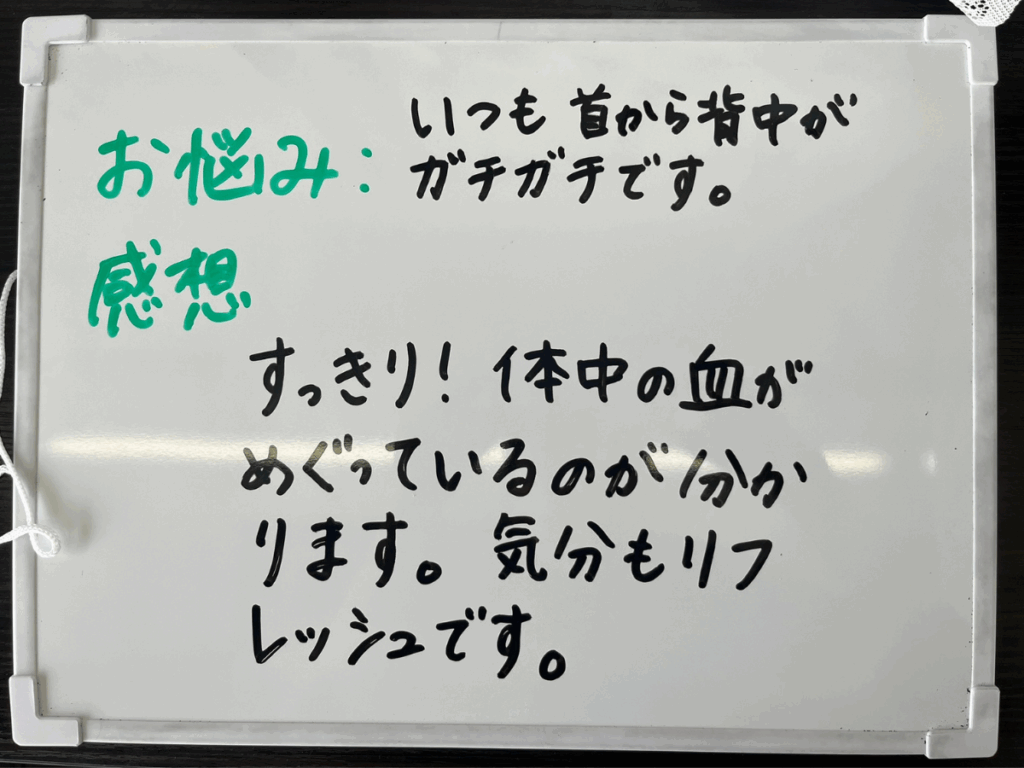 お悩み: いつも 首から背中が
ガチガチです。
感想
すっきり! 体中の血が
めぐっているのが分か
ります。気分もリフ
レッシュです。